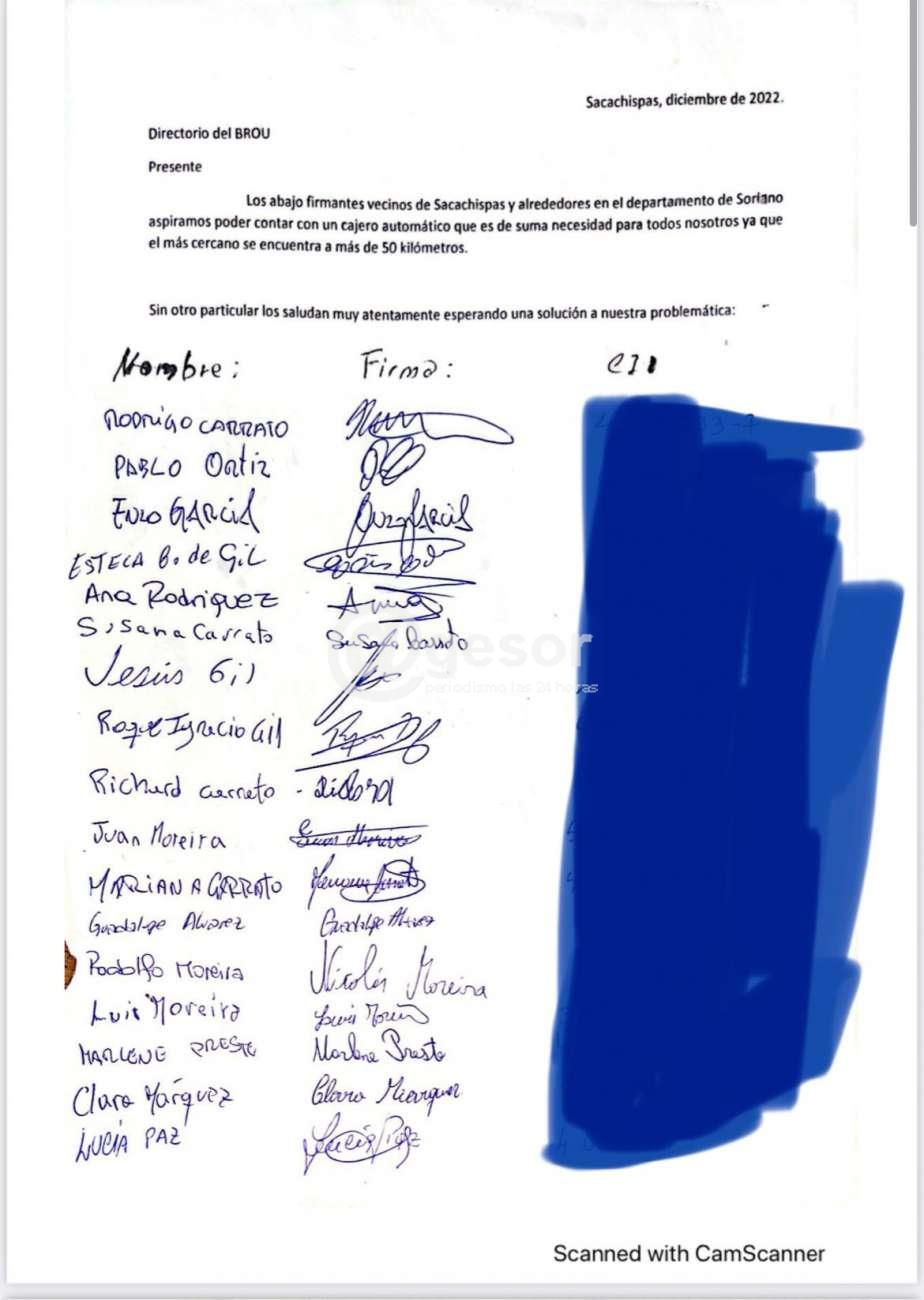 Sacachispas, diciembre de 2022.
Directorio del BROU
Presente
Los abajo firmantes vecinos de Sacachispas y alrededores en el departamento de Soriano
aspiramos poder contar con un cajero automático que es de suma necesidad para todos nosotros ya que
el más cercano se encuentra a más de 50 kilómetros.
Sin otro particular los saludan muy atentamente esperando una solución a nuestra problemática:
Nombre: Firma: CI
RODRIGO CARRATO
PABLO Ortiz
ENZO GARCIA
ESTECA B. de GiL
Ana Rodriguez
Susana Carrato Susana Carrato
gesor
periodismo las 24 horas
Jesús Gil
Roque Ignacio Gill
Richard carreto
Juan Moreira
MARIANA CARRATO
Guadalpe Alvarez Guadalpe Alvarez
Rodolfo Moreira Nicolás Moreira
Luis Moreira Luis
MARLENE PRESTE Marlene Preste
Clara Márquez Clara Marquez
LUCÍA PAZ Lucía Paz
Scanned with CamScanner